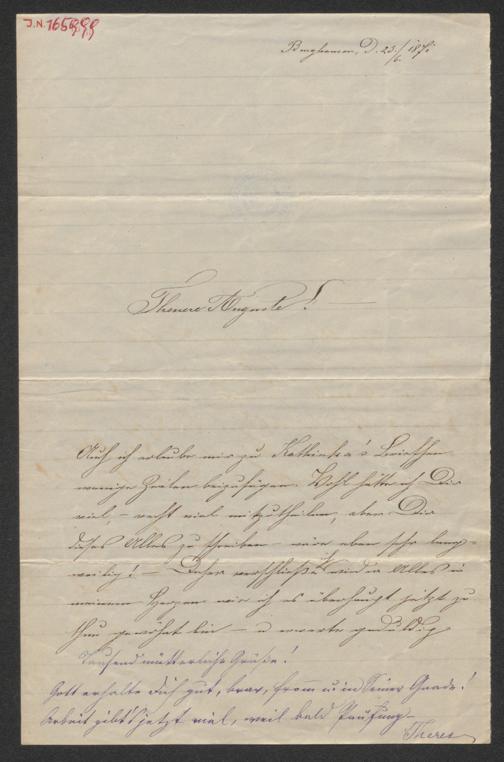 J.N. 165999
D. 23./6. 187
Theuere Auguste! —
Auch ich erlaube mir zu Kathinka's Briefchen
wenige Zeilen beizufügen. Wohl hätte ich Dir
viel, – recht viel mitzutheilen, aber Dir
dieses Alles zu schreiben wäre eben sehr lang-
weilig! – Daher verschließe ich wieder Alles in
meinem Herzen wie ich es überhaupt jetzt zu
thun gewöhnt bin – u erwarte geduldig
Tausend mütterliche Grüße!
Gott erhalte dich gut, brav, fromm u in Seiner Gnade!
Arbeit gibt's jetzt viel, weil bald Prüfung –
Theres